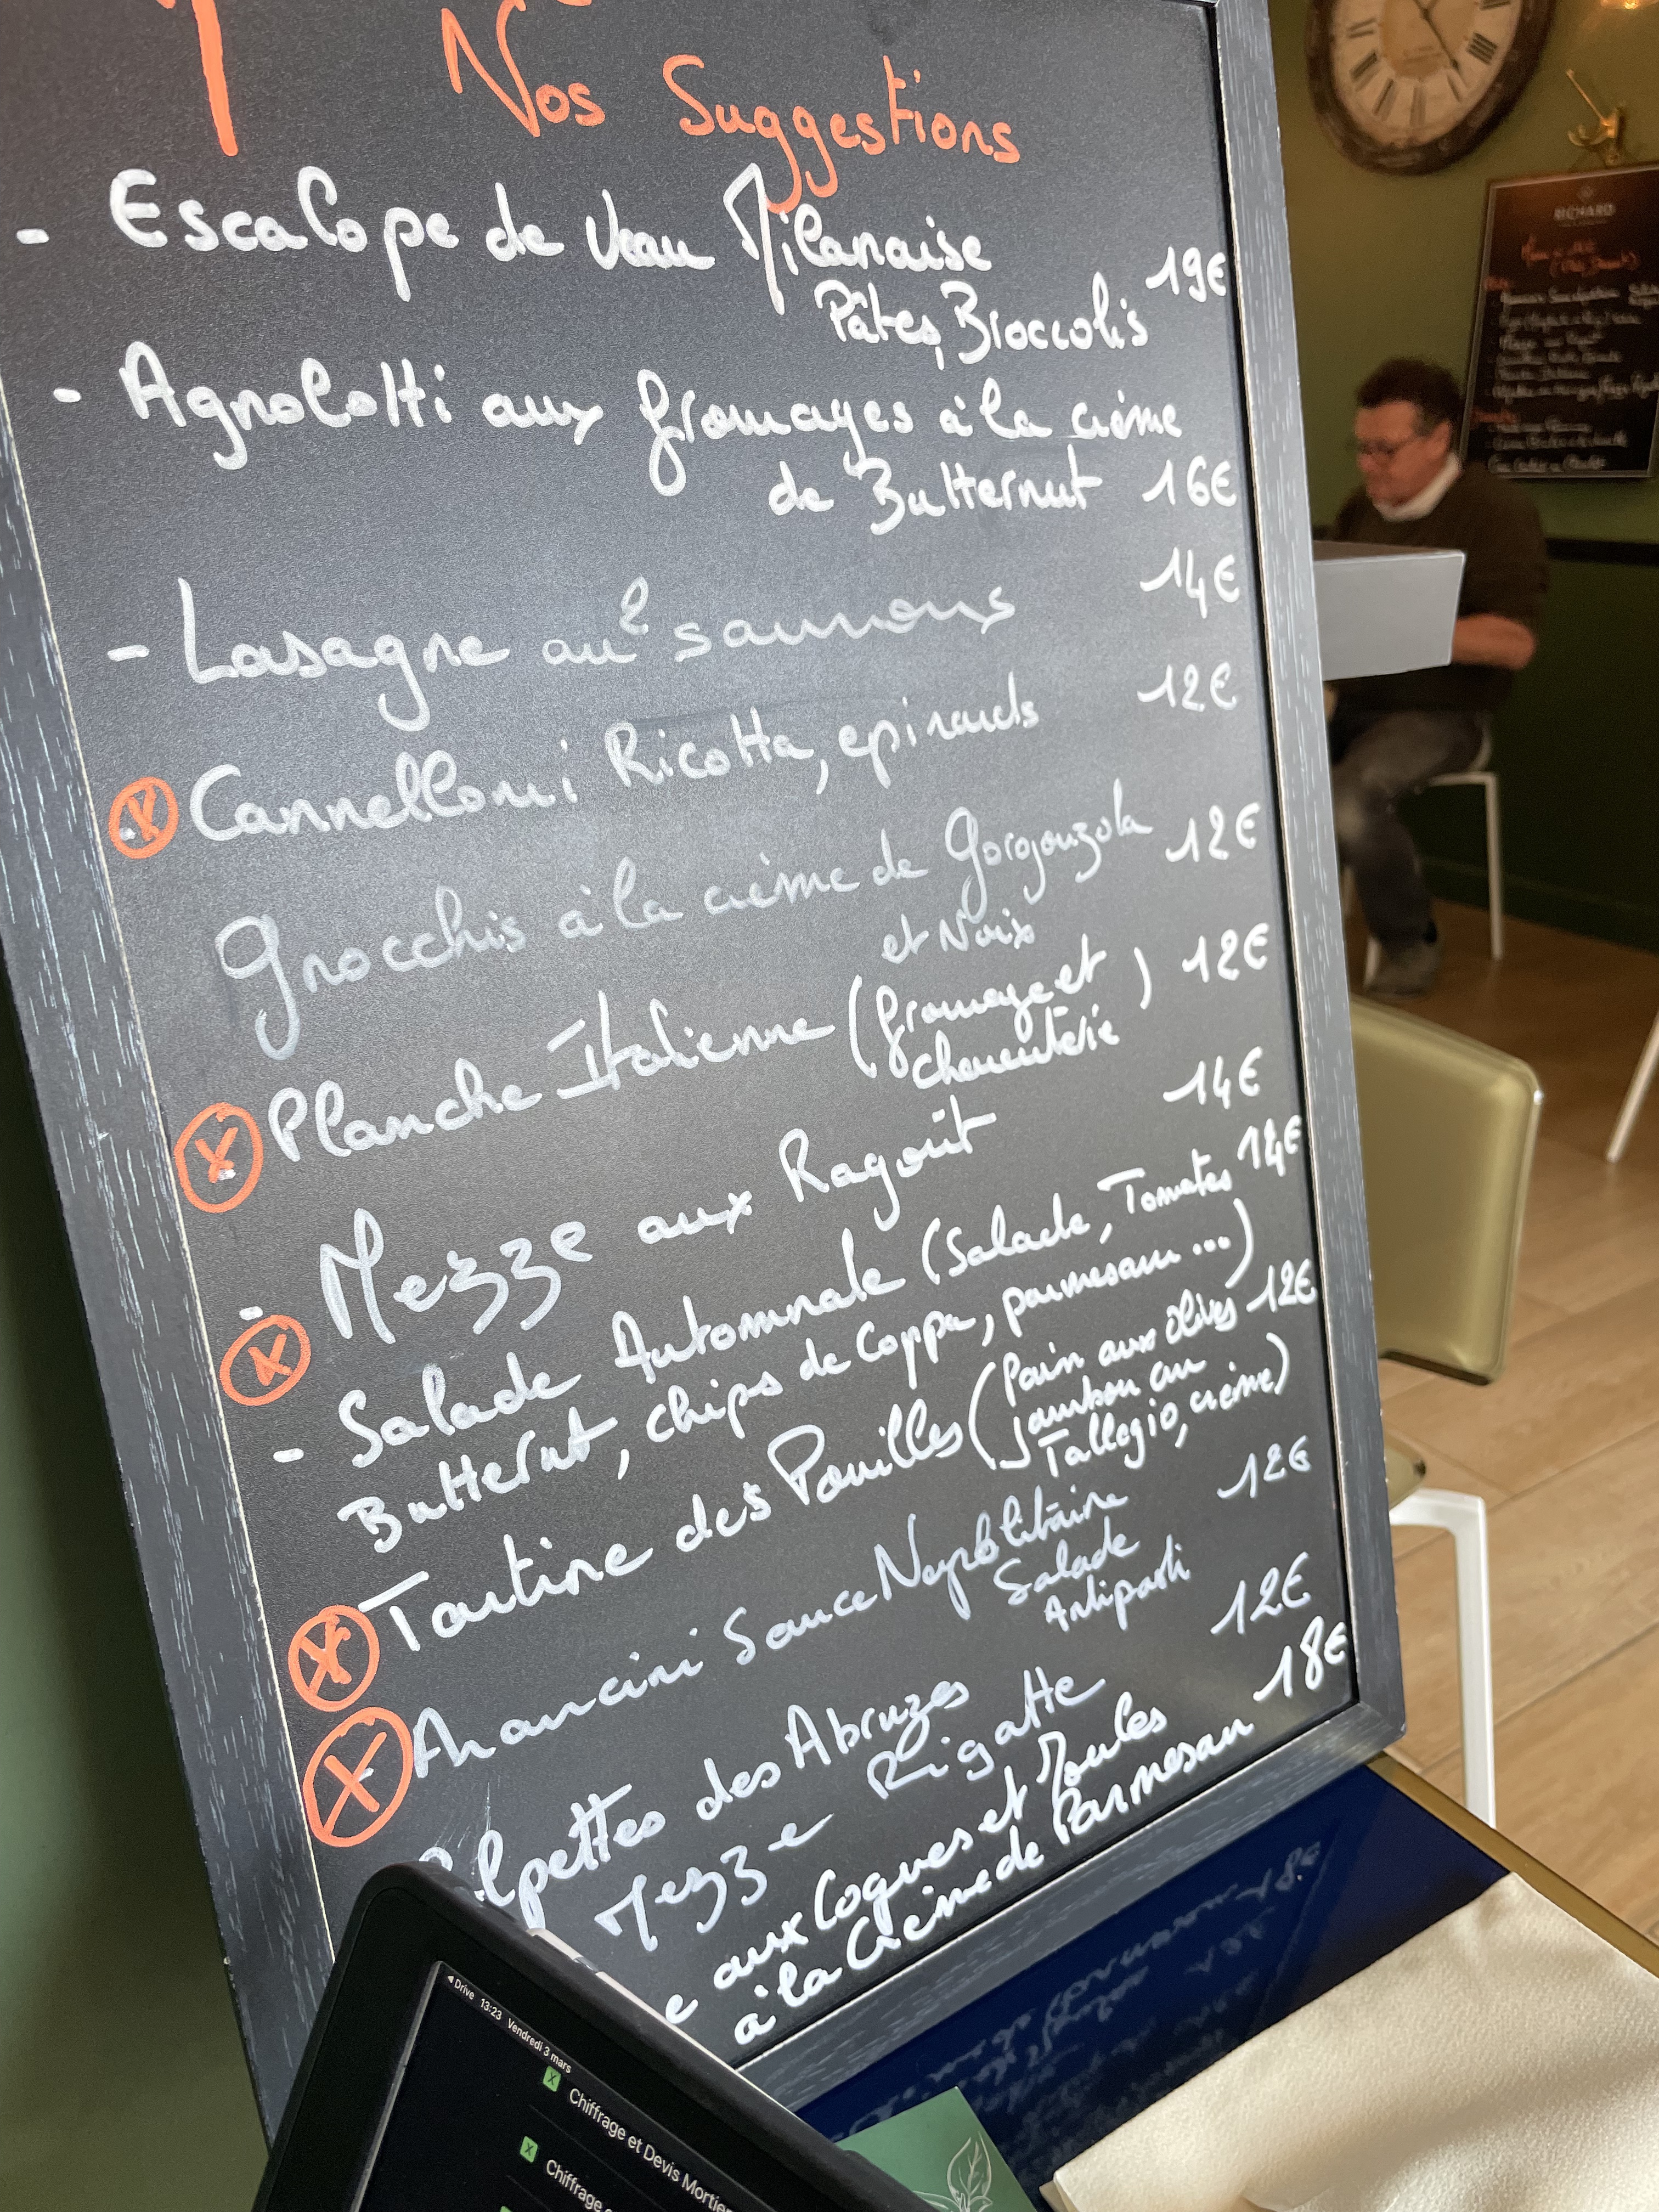 Nos Suggestions
- Escalope de Veau Milanaise 19€
Pâtes, Broccolis
- Agnolotti aux fromages à la crème
de Butternut 16€
- Lasagne au 2 saumons 14€
X Cannelloni Ricotta, epinards 12€
Gnocchis à la crème de Gorgonzola 12€
et Noix
X Planche Italienne (fromage et 12€
charcuterie)
- Mezze aux Ragoût 14€
X
- Salade Automnale (Salade, Tomates 14€
Butternut, chips de Coppa, parmesan ...)
X Tartine des Pouilles (Pain aux olives 12€
Jambon cru
Tallegio, crème)
X Arancini Sauce Napolitaine 12€
Salade
Antipasti
lpettes des Abruzes 12€
Mezze Rigatte
e aux Coques et Moules 18€
à la Crème de Parmesan
RICHARD
Drive 13:23 Vendredi 3 mars
X Chiffrage et Devis Mortier
X Chiffrage